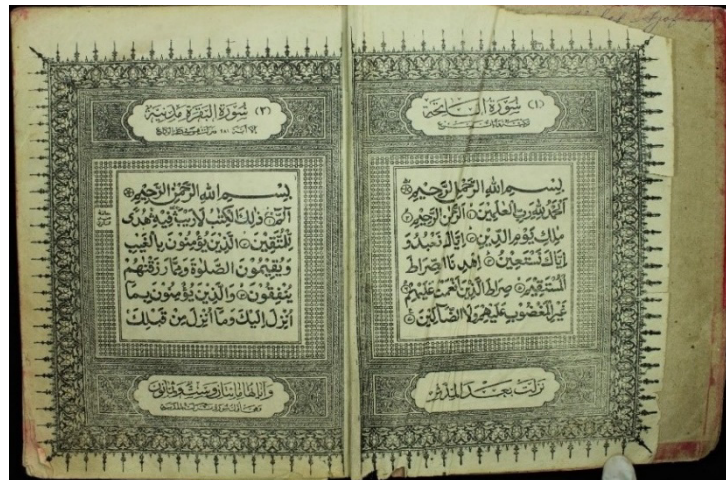 (١) سُورَةُ الفَاتِحَة
بِسْمِ اللهِ الرَّحْمٰنِ الرَّحِيمِ
اَلْحَمْدُ لِلّٰهِ رَبِّ الْعٰلَمِينَ الرَّحْمٰنِ الرَّحِيمِ
مٰلِكِ يَوْمِ الدِّينِ إِيَّاكَ نَعْبُدُ وَ
إِيَّاكَ نَسْتَعِينُ اِهْدِنَا الصِّرَاطَ
الْمُسْتَقِيمَ صِرَاطَ الَّذِينَ أَنْعَمْتَ عَلَيْهِمْ
غَيْرِ الْمَغْضُوبِ عَلَيْهِمْ وَلَا الضَّآلِّينَ
نَزَلَتْ بَعْدَ المُدَّثِّر
(٢) سُورَةُ البَقَرَةِ مَدَنِيَّة
إلا آية ٢٨١
بِسْمِ اللهِ الرَّحْمٰنِ الرَّحِيمِ
الٓمّٓ ذٰلِكَ الْكِتٰبُ لَا رَيْبَ فِيهِ هُدًى
لِلْمُتَّقِينَ الَّذِينَ يُؤْمِنُونَ بِالْغَيْبِ
وَيُقِيمُونَ الصَّلٰوةَ وَمِمَّا رَزَقْنٰهُمْ
يُنْفِقُونَ وَالَّذِينَ يُؤْمِنُونَ بِمَا
أُنْزِلَ إِلَيْكَ وَمَا أُنْزِلَ مِنْ قَبْلِكَ
وَآيَاتُهَا مِائَتَانِ وَسِتٌّ وَثَمَانُونَ